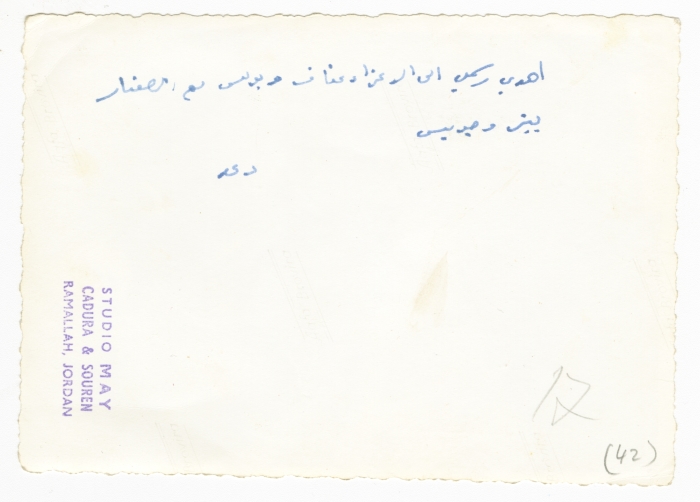 اهدي رسمي الى الاعزاء عفاف وبولس مع الصغار
بيتر وجويس
دعد
STUDIO MAY
CADURA & SOUREN
RAMALLAH, JORDAN
(42)